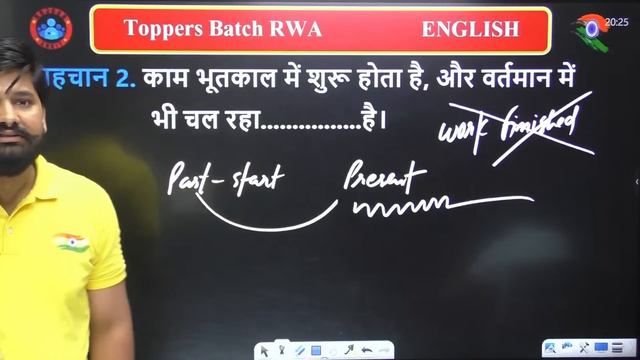 Toppers Batch RWA ENGLISH
20:25
हचान 2. काम भूतकाल में शुरू होता है, और वर्तमान में
भी चल रहा................है।
work finished
Past - start Present